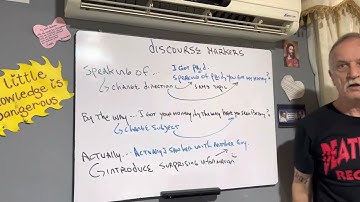 DISCOURSE MARKERS
SPEAKING OF... I GOT PAID.
SPEAKING OF PAID, YOU GOT MY MONEY?
CHANGE DIRECTION SAME TOPIC
BY THE WAY... I GOT YOUR MONEY, BY THE WAY HAVE YOU SEEN BETHANY?
CHANGE SUBJECT
ACTUALLY... ACTUALLY I SPOKEN WITH ANOTHER GUY.
INTRODUCE SURPRISING INFORMATION
little
knowledge is
DANGEROUS
DEATH
REC